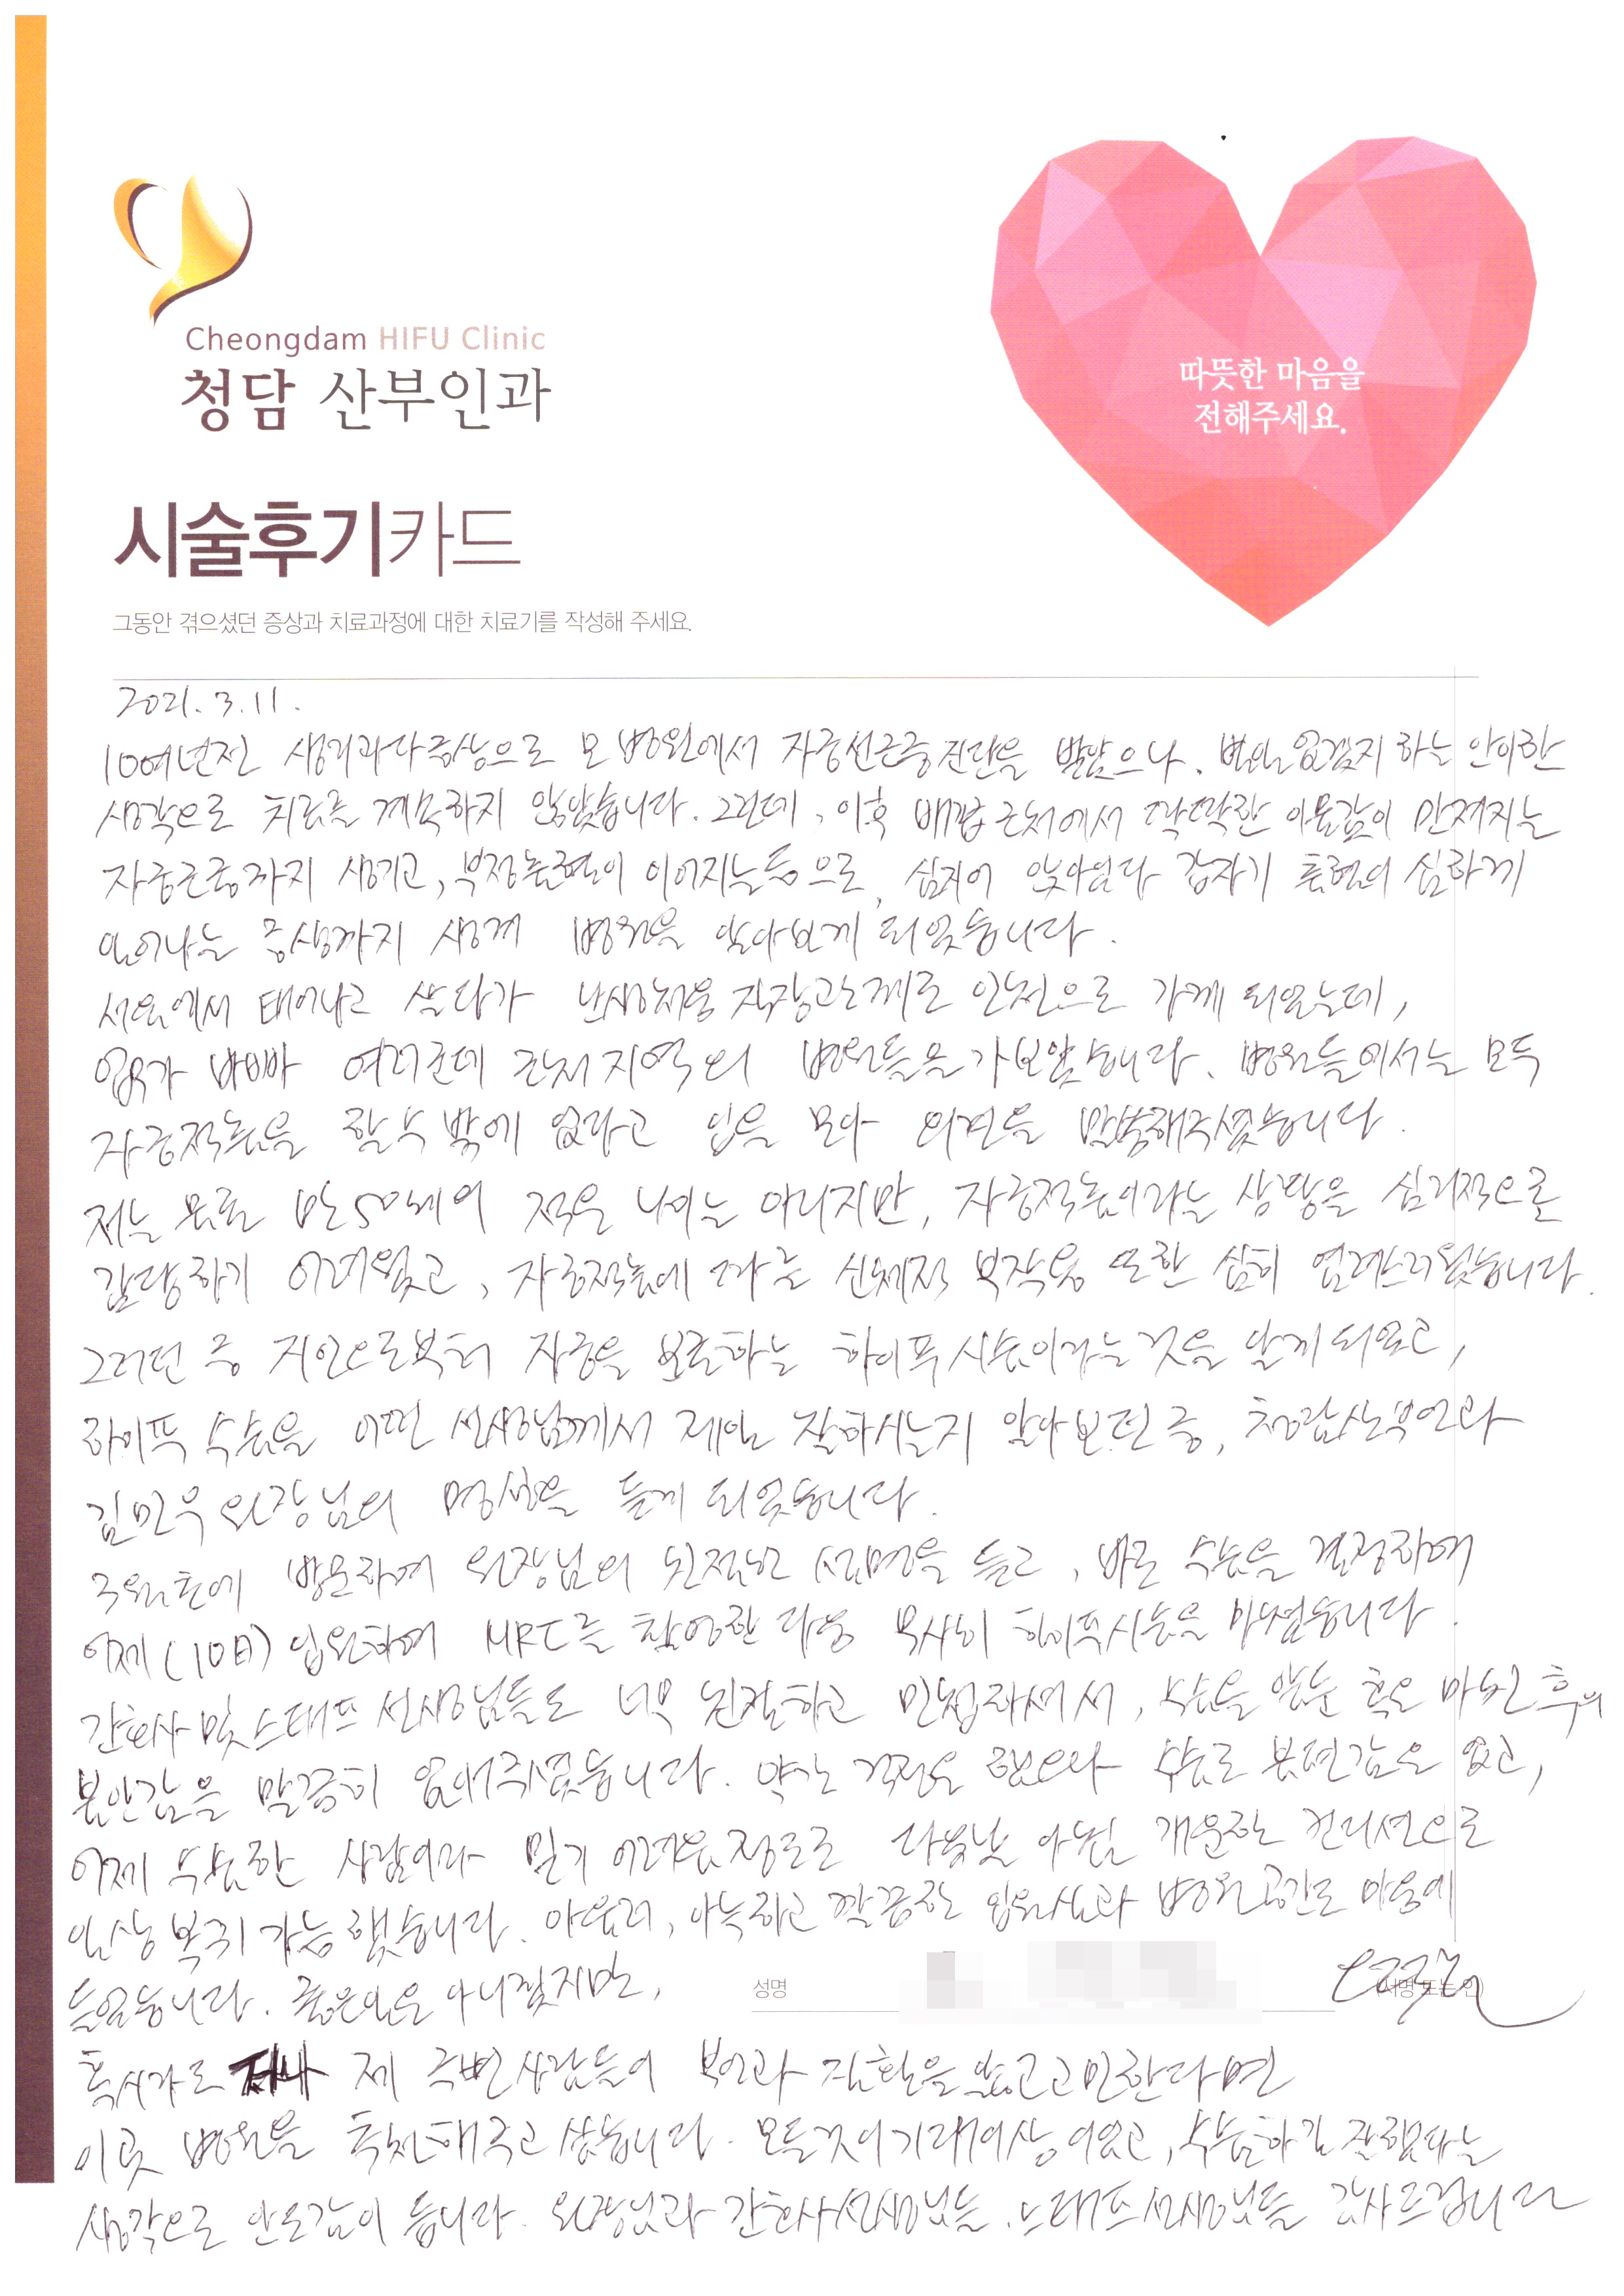 Cheongdam HIFU Clinic
청담 산부인과
따뜻한 마음을
전해주세요.
시술후기카드
그동안 겪으셨던 증상과 치료과정에 대한 치료기를 작성해 주세요.
2021. 3. 11.
10여년전 생리과다증상으로 모 병원에서 자궁선근증 진단을 받았으나, 별일 없겠지 하는 안이한
생각으로 치료를 계속하지 않았습니다. 그런데, 이후 배꼽 근처에서 딱딱한 이물감이 만져지는
자궁근종까지 생기고, 부정출혈이 이어지는 등으로, 심지어 앉아있다 갑자기 출혈이 심하게
일어나는 증상까지 생겨 병원을 알아보게 되었습니다.
서울에서 태어나고 살다가 난생처음 직장관계로 인천으로 가게 되었는데,
업무가 바빠 여러군데 근처 지역의 병원들을 가보았습니다. 병원들에서는 모두
자궁적출을 할 수 밖에 없다고 입을 모아 의견을 말씀해주셨습니다.
저는 물론 만 50세의 적은 나이는 아니지만, 자궁적출이라는 상황을 심리적으로
감당하기 어려웠고, 자궁적출에 따른 신체적 부작용 또한 심히 염려스러웠습니다.
그러던 중 지인으로부터 자궁을 보존하는 하이푸시술이라는 것을 알게 되었고,
하이푸 수술을 어떤 선생님께서 제일 잘하시는지 알아보던 중, 청담산부인과
김민우 원장님의 명성을 듣게 되었습니다.
3월초에 방문하여 원장님의 친절한 설명을 듣고, 바로 수술을 결정하여
어제(10日) 입원하여 MRI를 촬영한 다음 무사히 하이푸시술을 마쳤습니다.
간호사 및 스태프 선생님들도 너무 친절하고 민첩하셔서, 수술을 앞둔 혹은 마친 후의
불안감을 말끔히 없애주셨습니다. 약간 걱정을 했으나 수술로 불편감은 없고,
어제 수술한 사람이라 믿기 어려울 정도로 다음날 아침 개운한 컨디션으로
일상 복귀 가능했습니다. 아울러, 아늑하고 깔끔한 입원실과 병원공간도 마음에
들었습니다. 좋은일은 아니겠지만,
성명
(서명 또는 인)
혹시라도 제 주변사람들이 부인과 질환을 앓고 고민한다면
이곳 병원을 추천해주고 싶습니다. 모든것이 기대이상이었고, 수술하길 잘했다는
생각으로 안도감이 듭니다. 원장님과 간호사선생님들, 스태프선생님들 감사드립니다